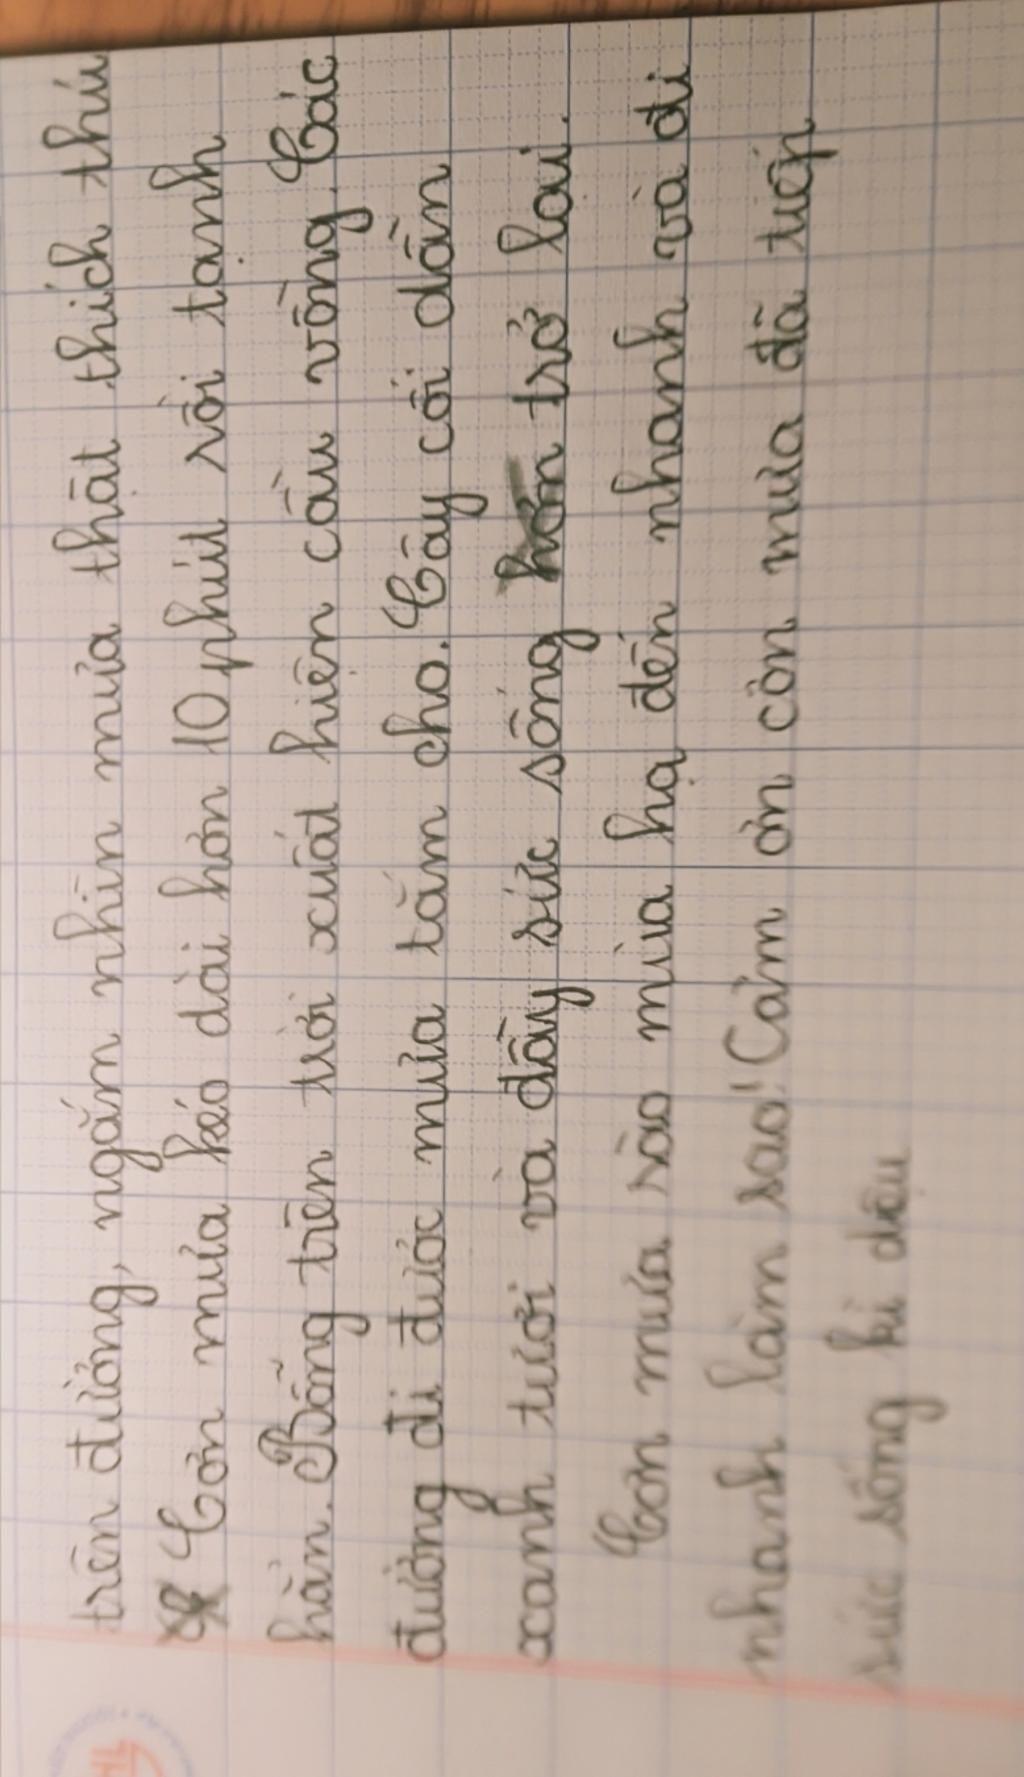 trên đường, ngắm nhìn mưa thật thích thú
Cơn mưa kéo dài hơn 10 phút rồi tạnh
hẳn. Bỗng trên trời xuất hiện cầu vồng. Các
đường đi được mưa tắm cho. Cây cối dần
xanh tươi và đầy sức sống hơn trở lại.
Cơn mưa rào mùa hạ đến nhanh và đi
nhanh làm sao! Cảm ơn cơn mưa đã tiếp
sức sống kì diệu